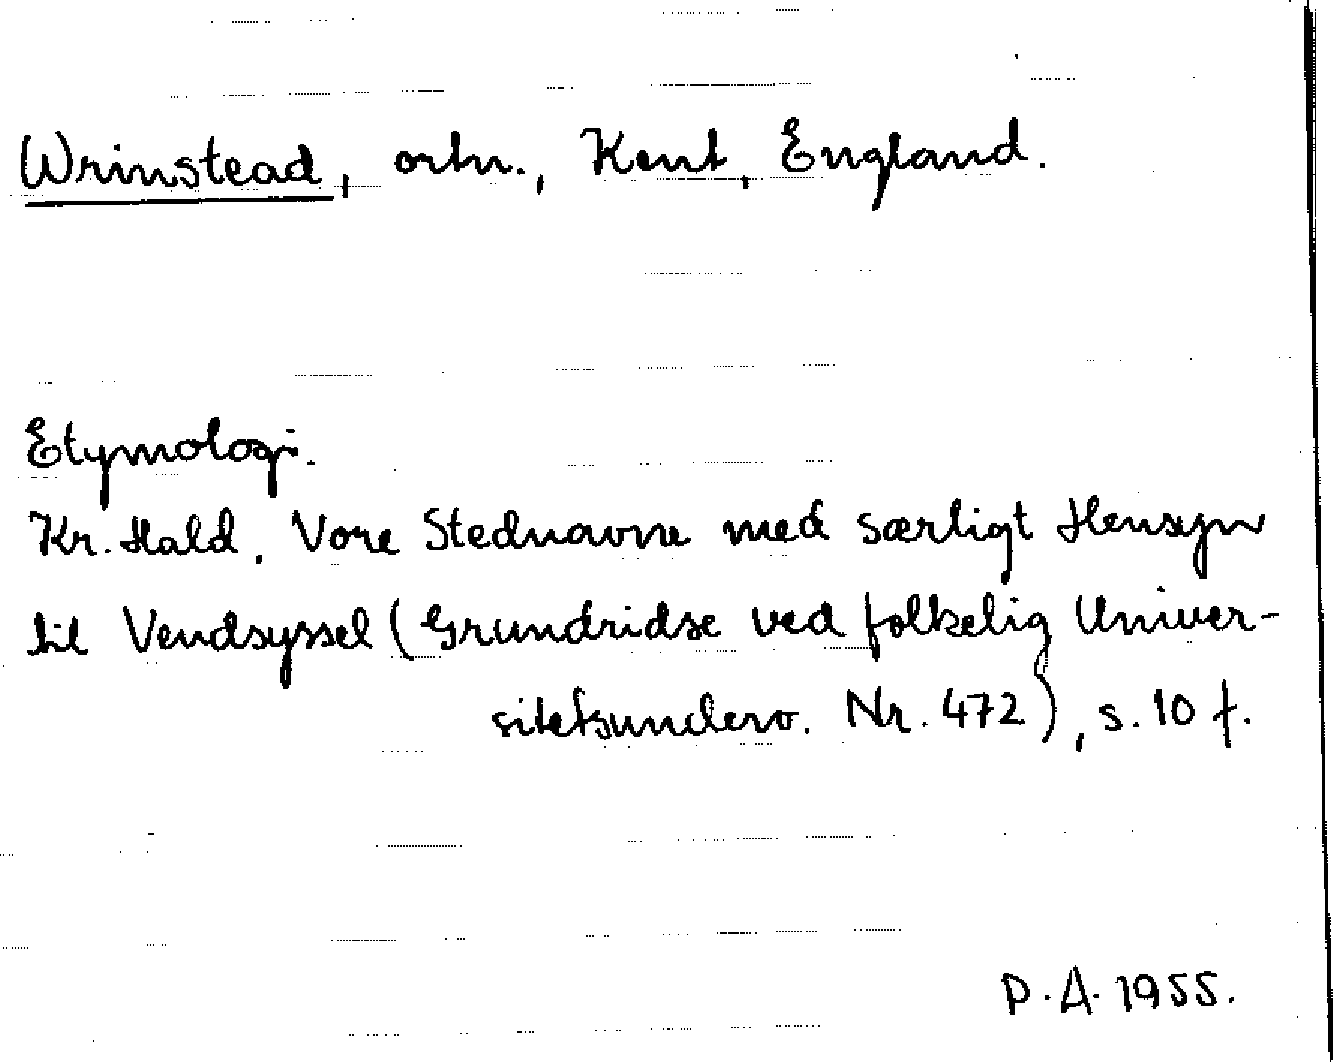 Wrinstead, ortn., Kent, England.
Etymologi.
Kr. Hald. Vore Stednavne med særligt Hensyn
til Vendsyssel (Grundridse ved folkelig Univer-
sitetsunderv. Nr. 472), s. 10 f.
P.A. 1955.